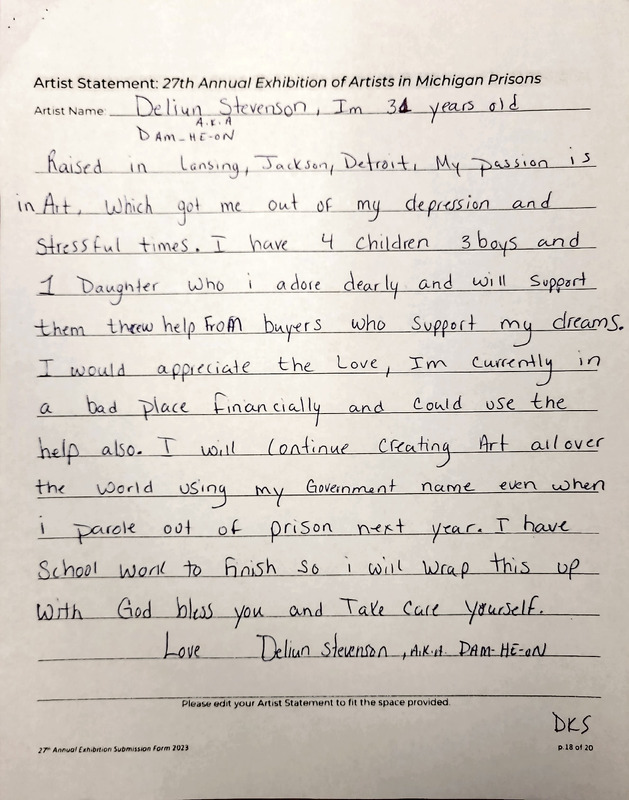 Artist Statement: 27th Annual Exhibition of Artists in Michigan Prisons
Artist Name: Deliun Stevenson, Im 31 years old
A.K.A
DAM-HE-ON
Raised in Lansing, Jackson, Detroit. My passion is
in Art, which got me out of my depression and
stressful times. I have 4 children 3 boys and
1 Daughter who i adore dearly and will support
them threw help From buyers who support my dreams.
I would appreciate the Love, Im currently in
a bad place financially and could use the
help also. I will continue creating Art all over
the world using my Government name even when
i parole out of prison next year. I have
School work to finish so i will wrap this up
with God bless you and Take care yourself.
Love Deliun Stevenson, A.K.A. DAM-HE-ON
Please edit your Artist Statement to fit the space provided.
DKS
27th Annual Exhibition Submission Form 2023
p.18 of 20